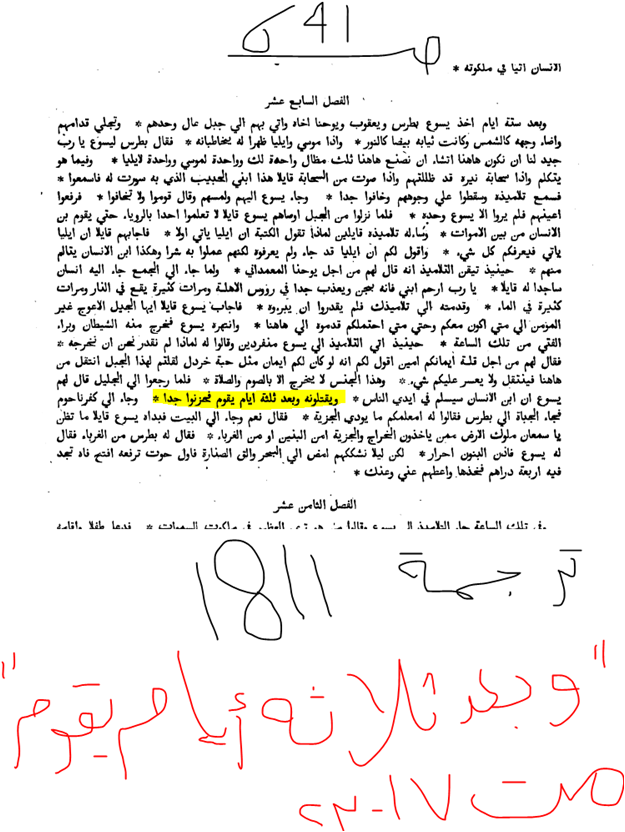 صـ 41 ك
الانسان اتيا في ملكوته *
الفصل السابع عشر
وبعد ستة ايام اخذ يسوع بطرس ويعقوب ويوحنا اخاه واتي بهم الي جبل عال وحدهم * وتجلي قدامهم
واضاء وجهه كالشمس وكانت ثيابه بيضا كالنور * واذا موسي وايليا ظهرا له يخاطبانه * فقال بطرس ليسوع يا رب
جيد لنا ان نكون هاهنا اتشاء ان نصنع هاهنا ثلث مظال واحدة لك وواحدة لموسي وواحدة لايليا * وفيما هو
يتكلم واذا سحابة نيرة قد ظللتهم واذا صوت من السحابة قايلا هذا ابني الحبيب الذي به سررت له فاسمعوا *
فسمع تلاميذه وسقطوا علي وجوههم وخافوا جدا * وجاء يسوع اليهم ولمسهم وقال قوموا ولا تخافوا * فرفعوا
اعينهم فلم يروا الا يسوع وحده * فلما نزلوا من الجبل اوصاهم يسوع قايلا لا تعلموا احدا بالرويا حتي يقوم بن
الانسان من بين الاموات * وساله تلاميذه قايلين لماذا تقول الكتبة ان ايليا ياتي اولا * فاجابهم قايلا ان ايليا
ياتي فيعرفكم كل شي * واقول لكم ان ايليا قد جاء ولم يعرفوه لكنهم عملوا به شرا وهكذا ابن الانسان يتالم
منهم * حينيذ تيقن التلاميذ انه قال لهم من اجل يوحنا المعمداني * ولما جاء الي الجمع جاء اليه انسان
ساجدا له قايلا * يا رب ارحم ابني فانه يجنن ويعذب جدا في رؤوس الاهلة ومرات كثيرة يقع في النار ومرات
كثيرة في الماء * وقدمته الي تلاميذك فلم يقدروا ان يبروه * فاجاب يسوع قايلا ايها الجيل الاعوج غير
المومن الي متي اكون معكم وحتي متي احتملكم قدموه الي هاهنا * وانتهره يسوع فخرج منه الشيطان وبراء
الفتي من تلك الساعة * حينيذ اتي التلاميذ الي يسوع منفردين وقالوا له لماذا لم نقدر نحن ان نخرجه *
فقال لهم من اجل قلة ايمانكم امين اقول لكم انه لو كان لكم ايمان مثل حبة خردل لقلتم لهذا الجبل انتقل من
هاهنا فينتقل ولا يعسر عليكم شي * وهذا الجنس لا يخرج الا بالصوم والصلاة * فلما رجعوا الي الجليل قال لهم
يسوع ان ابن الانسان سيسلم في ايدي الناس * ويقتلونه وبعد ثلثة ايام يقوم فحزنوا جدا * وجاء الي كفرناحوم
فجاء الجباة الي بطرس فقالوا له امعلمكم ما يودي الجزية * فقال نعم وجاء الي البيت فبداه يسوع قايلا ما تظن
يا سمعان ملوك الارض ممن ياخذون الخراج والجزية امن البنين او من الغرباء * فقال له بطرس من الغرباء فقال
له يسوع فاذن البنون احرار * لكن ليلا نشككهم امض الي البحر والق الصنارة فاول حوت ترفعه افتح فاه تجد
فيه اربعة دراهم فخذها واعطهم عني وعنك *
الفصل الثامن عشر
ترجمة 1811
"وبعد ثلاثة أيام يقوم"
مت ١٧-٢٣